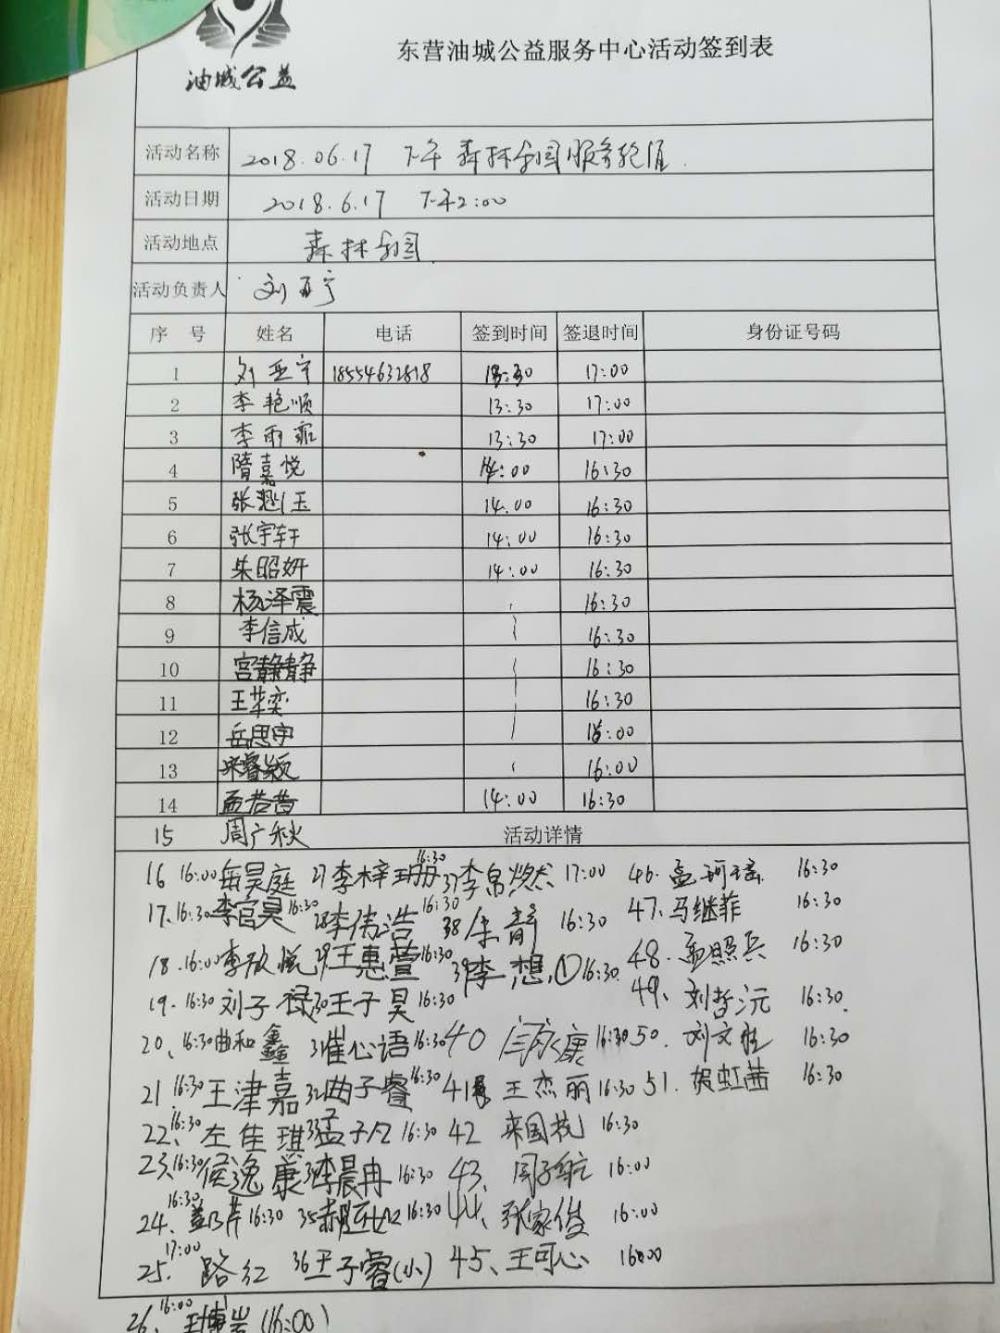 油城公益
东营油城公益服务中心活动签到表
活动名称 2018.06.17 下午 森林公园服务轮值.
活动日期 2018.6.17 下午2:00
活动地点 森林公园
活动负责人 刘亚宁
序 号 姓名 电话 签到时间 签退时间 身份证号码
1 刘亚宁 18554632818 13:30 17:00
2 李艳顺 13:30 17:00
3 李雨 13:30 17:00
4 隋嘉悦 14:00 16:30
5 张 玉 14.00 16:30
6 张宇轩 14:00 16:30
7 朱昭妍 14:00 16:30
8 杨泽震 16:30
9 李信成 16:30
10 宫静静 16:30
11 王芊奕 16:30
12 岳思宇 :00
13 睿颖 16:00
14 孟若昔 14:00 16:30
15 周广秋 活动详情
16 16:00 岳昊庭 27 李梓珊 16:30 37 李帛燃 17:00 46. 孟珂瑶 16:30
17、16:30 李宫昊 16:30 28 李伟浩 16:30 38 余静 16:30 47. 马继菲 16:30
18.16:00 李欣悦 29 王惠萱 16:30 39 李想① 16:30 48. 孟照兵 16:30
19. 16:30 刘子禄 30 王子昊 16:30 49. 刘哲沅 16:30
20、16:30 曲和鑫 31 崔心语 16:30 40 闫永康 16:30 50. 刘文 16:30
21 16:30 王津嘉 32 曲子睿 16:30 41 王杰丽 16:30 51. 贺虹茜 16:30
22、16:30 左佳琪 33 孟子凡 16:30 42 来国 16:30
23、16:30 侯逸康 34 李晨冉 16:30 43、周子航 16:00
24. 16:30 乃芹 16:30 35 16:30 44、张家俊 16:00
25. 17:00 路红 36 王子睿(小) 45、王可心 16:00
26. 16:00 王博岩 (16:00)